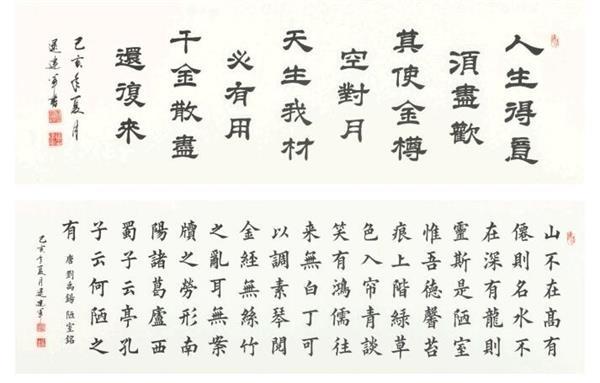 人生得意
須盡歡
其使金樽
空對月
天生我材
必有用
千金散盡
還復來
己亥年夏月
軍書
山不在高有
僊則名水不
在深有龍則
靈斯是陋室
惟吾德馨苔
痕上階綠草
色入帘青談
笑有鴻儒往
來無白丁可
以調素琴閱
金經無絲竹
之亂耳無案
牘之勞形南
陽諸葛廬西
蜀子云亭孔
子云何陋之
有 唐劉禹錫 陋室銘
己亥年夏月軍